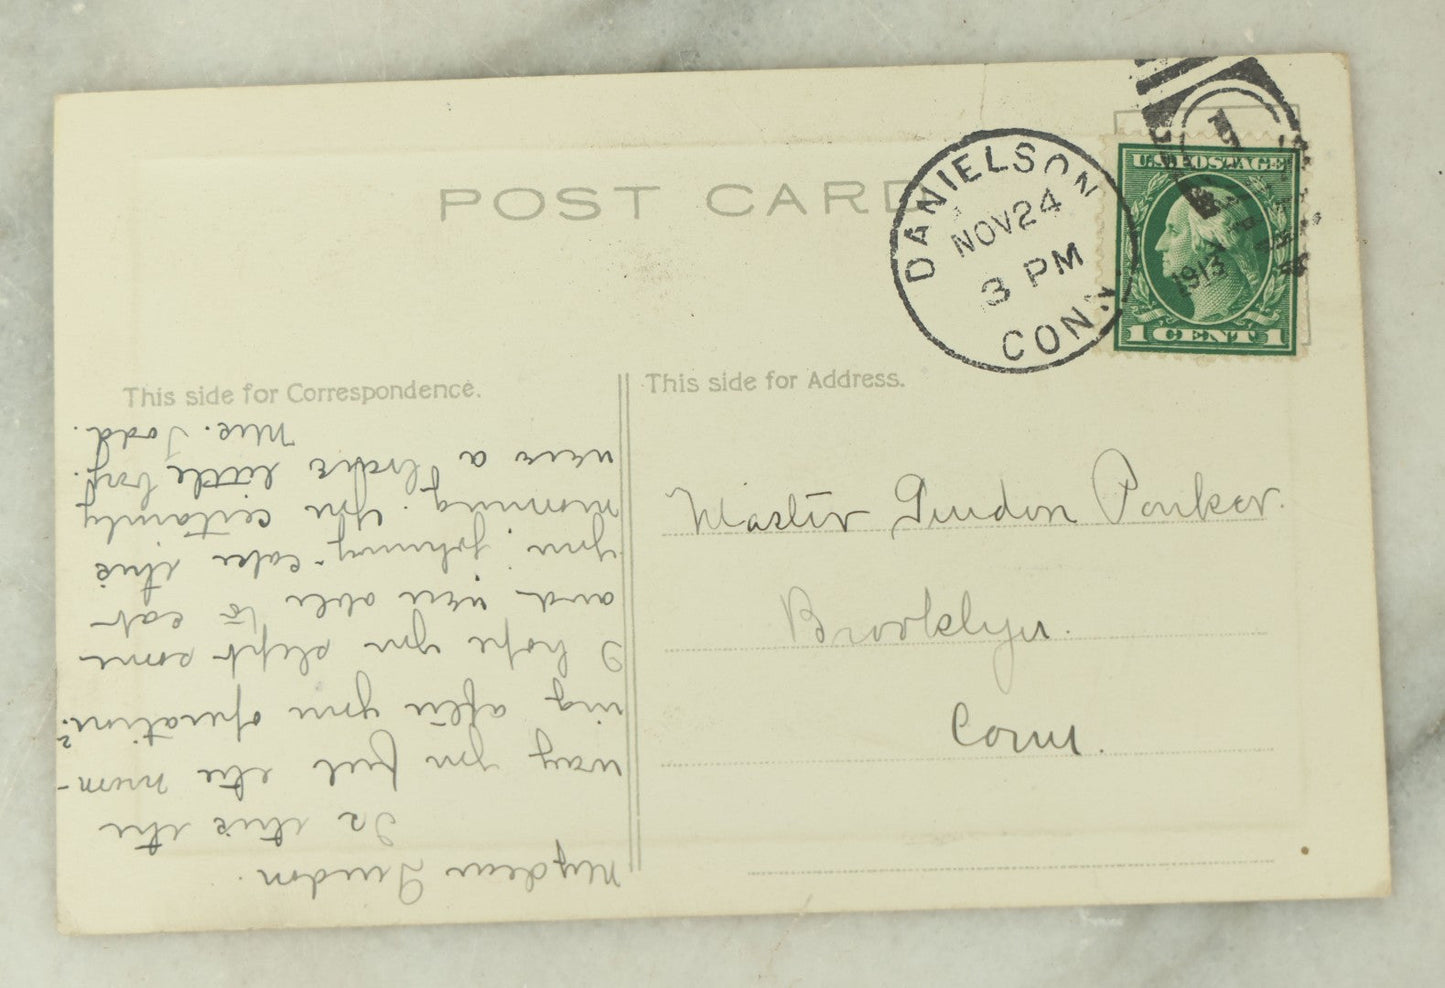 POST CARD
DANIELSON
NOV 24
3 PM
1913
CONN.
1
U.S. POSTAGE
1 CENT 1
This side for Correspondence.
This side for Address.
Master Gurdon Parker.
Brooklyn.
Conn.
My dear Gurdon.
Is this the
way you feel the morn-
ing after your operation?
I hope you slept some
and were able to eat
your "Johnny-cake" this
morning. You certainly
were a little boy.
Mrs. Todd.